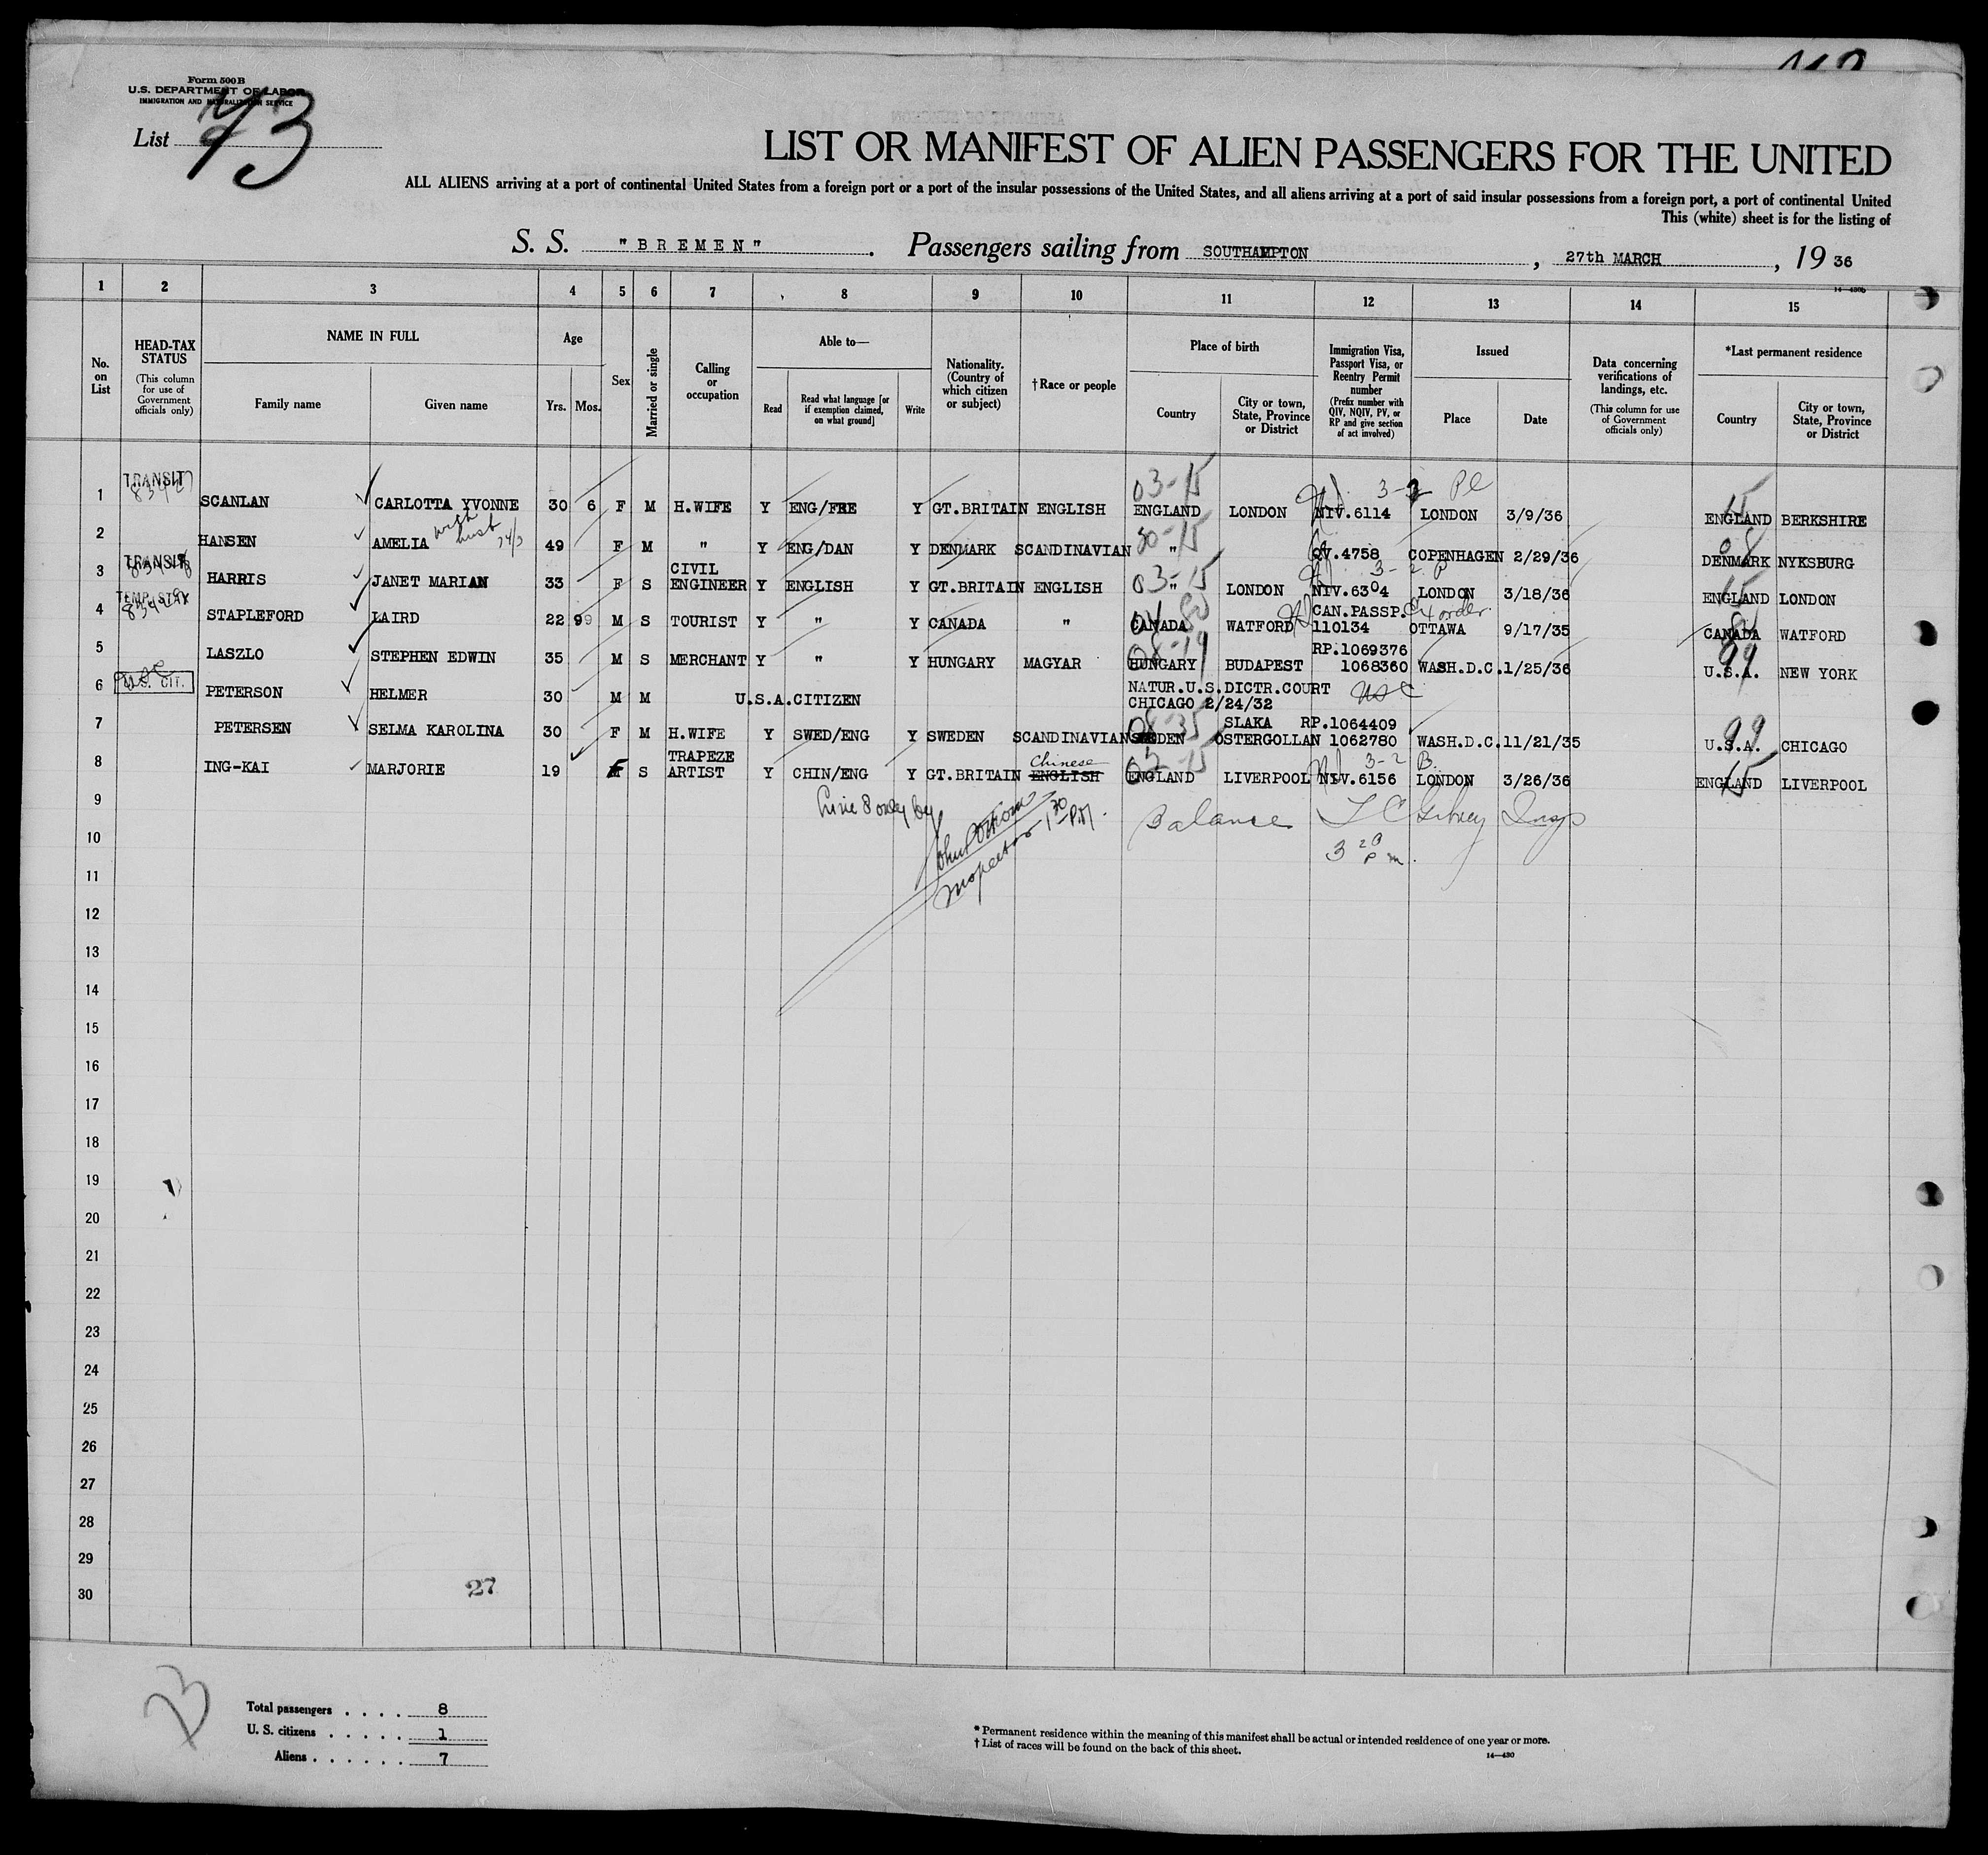 Form 500 B
U.S. DEPARTMENT OF LABOR
IMMIGRATION AND NATURALIZATION SERVICE
List 73
LIST OR MANIFEST OF ALIEN PASSENGERS FOR THE UNITED
ALL ALIENS arriving at a port of continental United States from a foreign port or a port of the insular possessions of the United States, and all aliens arriving at a port of said insular possessions from a foreign port, a port of continental United
This (white) sheet is for the listing of
S. S. "BREMEN". Passengers sailing from SOUTHAMPTON, 27th MARCH, 19 36
14—430b
1 2 3 4 5 6 7 8 9 10 11 12 13 14 15
No. on List
HEAD-TAX STATUS (This column for use of Government officials only)
NAME IN FULL
Family name Given name
Age
Yrs. Mos.
Sex
Married or single
Calling or occupation
Able to—
Read Read what language [or if exemption claimed, on what ground] Write
Nationality. (Country of which citizen or subject)
†Race or people
Place of birth
Country City or town, State, Province or District
Immigration Visa, Passport Visa, or Reentry Permit number (Prefix number with QIV, NQIV, PV, or RP and give section of act involved)
Issued
Place Date
Data concerning verifications of landings, etc. (This column for use of Government officials only)
*Last permanent residence
Country City or town, State, Province or District
TRANSIT 03-15 3-2
1 SCANLAN CARLOTTA YVONNE 30 6 F M H.WIFE Y ENG/FRE Y GT.BRITAIN ENGLISH ENGLAND LONDON NIV.6114 LONDON 3/9/36 ENGLAND BERKSHIRE 15
with husb 74/3
2 HANSEN AMELIA 49 F M " Y ENG/DAN Y DENMARK SCANDINAVIAN 30-15 " QV.4758 COPENHAGEN 2/29/36 DENMARK NYKSBURG 08
TRANSIT 3-2 P
3 HARRIS JANET MARIAN 33 F S CIVIL ENGINEER Y ENGLISH Y GT.BRITAIN ENGLISH 03-15 " LONDON NIV.6304 LONDON 3/18/36 ENGLAND LONDON 15
TEMP. STAY 83429
4 STAPLEFORD LAIRD 22 9 M S TOURIST Y " Y CANADA " CANADA WATFORD CAN.PASSP. 110134 OTTAWA 9/17/35 CANADA WATFORD
5 LASZLO STEPHEN EDWIN 35 M S MERCHANT Y " Y HUNGARY MAGYAR HUNGARY BUDAPEST RP.1069376 1068360 WASH.D.C. 1/25/36 U.S.A. NEW YORK 99
USC
U.S. CIT.
6 PETERSON HELMER 30 M M U.S.A.CITIZEN NATUR.U.S.DICTR.COURT CHICAGO 2/24/32 USC
7 PETERSEN SELMA KAROLINA 30 F M H.WIFE Y SWED/ENG Y SWEDEN SCANDINAVIAN SWEDEN SLAKA OSTERGOLLAN RP.1064409 1062780 WASH.D.C. 11/21/35 U.S.A. CHICAGO 99
Chinese 3-2 B.
8 ING-KAI MARJORIE 19 F S TRAPEZE ARTIST Y CHIN/ENG Y GT.BRITAIN ENGLISH ENGLAND LIVERPOOL NIV.6156 LONDON 3/26/36 ENGLAND LIVERPOOL 15
Line 8 only by
Inspector 1 30 P.M.
Balance
3 20 P m.
9
10
11
12
13
14
15
16
17
18
19
20
21
22
23
24
25
26
27
28
29
30
27
Total passengers . . . . 8
U. S. citizens . . . . . 1
Aliens . . . . . . 7
* Permanent residence within the meaning of this manifest shall be actual or intended residence of one year or more.
† List of races will be found on the back of this sheet.
14—430